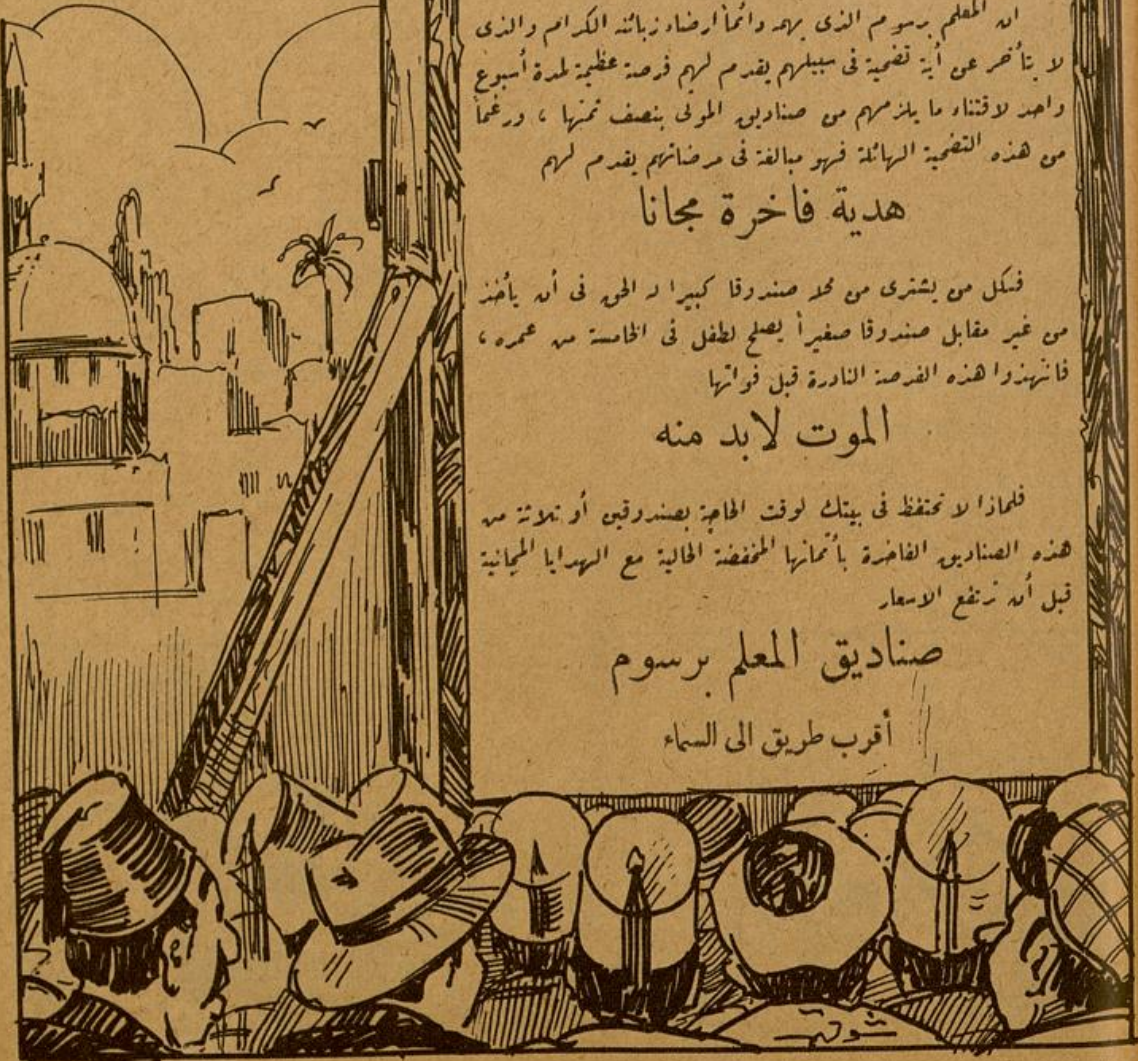 ان المعلم برسوم الذى يهمه دائماً ارضاء زبائنه الكرام والذى
لا يتأخر عن أية تضحية فى سبيلهم يقدم لهم فرصة عظيمة لمدة أسبوع
واحد لاقتناء ما يلزمهم من صناديق الموتى بنصف ثمنها ، ورغماً
من هذه التضحية الهائلة فهو مبالغة فى مرضاتهم يقدم لهم
هدية فاخرة مجانا
فكل من يشترى من محله صندوقا كبيرا له الحق فى أن يأخذ
من غير مقابل صندوقا صغيراً يصلح لطفل فى الخامسة من عمره ،
فانتهزوا هذه الفرصة النادرة قبل فواتها
الموت لابد منه
فلماذا لا تحتفظ فى بيتك لوقت الحاجة بصندوقين أو ثلاثة من
هذه الصناديق الفاخرة بأثمانها المخفضة الحالية مع الهدايا المجانية
قبل أن ترتفع الاسعار
صناديق المعلم برسوم
أقرب طريق الى السماء